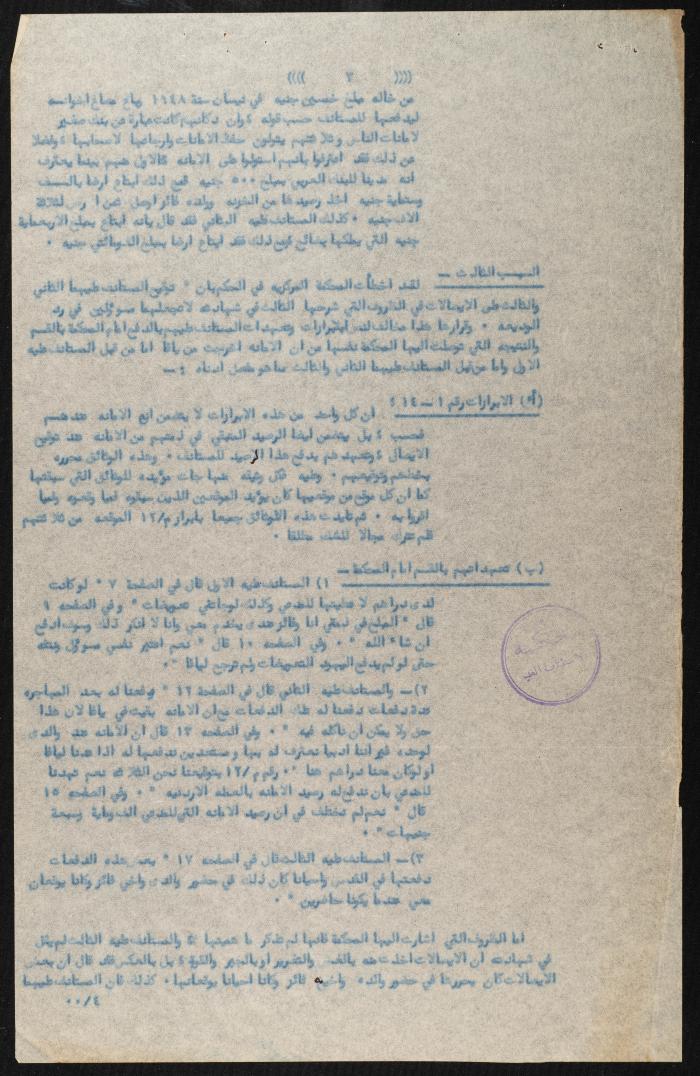 (((( ٧ ))))
من خاله مبلغ خمسين جنيه في نيسان سنة ١٩٤٨ وباع مصاغ
ليدفعها للمستانف حسب قوله ٤ وان دكانهم كانت عبارة عن بنك صغير
لامانات الناس وثلاثتهم يقولون حفظ الامانات وارجاعها لاصحابها ٤ وفضلا
عن ذلك فقد اعترفوا بانهم استولوا على الامانه فالاول منهم بينما يعترف
انه مدينا للبنك العربي بمبلغ ٥٠٠ جنيه فمع ذلك ابتاع ارضا بالف
وستماية جنيه اخذ رصيدها من الشونه وولده فائز
الاف جنيه ٠ كذلك المستانف عليه الثاني فقد قال بانه ابتاع بمبلغ الاربعماية
جنيه التي يملكها بضائع ومع ذلك فقد ابتاع ارضا بمبلغ جنيه ٠
السبب الثالث —
لقد اخطأت المحكمة المركزيه في الحكم بان " توقيع المستانف عليهما الثاني
والثالث على الايصالات في الظروف التي شرحها الثالث في شهادته لا تجعلهما مسوٴلين في رد
الوديعه ٠ وقرارها هذا مخالف لنص الابرازات وتعهدات المستانف عليهم بالدفع امام المحكمة بالقسم
والنتيجه التي توصلت اليها المحكمة نفسها من ان الامانه اخرجت من يافا اما من قبل المستانف عليه
الاول واما من قبل المستانف عليهما الثاني والثالث مما هو مفصل ادناه ٤ —
(أ) الابرازات رقم ١ — ١٤ ٤
ان كل واحد من هذه الابرازات لا يتضمن ان الامانه عندهم
فحسب ٤ بل يتضمن ايضا الرصيد المتبقي في ذمتهم من الامانه عند توقيع
الايصال ٤ وتعهدهم بدفع هذا الرصيد للمستانف ٠ وهذه الوثائق محرره
بخطهم وتوقيعهم ٠ وعليه فكل وثيقه منها جائت موٴيده للوثائق التي سبقتها
كما ان كل موقع من موقعيها كان يوٴيد الموقعين الذين سبقوه فيما وقعوه وفيما
اقروا به ٠ ثم تايدت هذه الوثائق جميعا بابراز م/١٢ الموقعه من ثلاثتهم
فلم تترك مجالا للشك مطلقا ٠
(ب) تعهداتهم بالقسم امام المحكمة —
١) المستانف عليه الاول قال في الصفحة ٧ " لو كانت
لدى دراهم لاعطيتها للمدعي وكذلك لو جائتني تعويضات " وفي الصفحه ٩
قال " المبلغ في ذمتي انا وفائز هدى يخدم معي وانا لا انكر ذلك وسوف ادفع
ان شاء الله " ٠ وفي الصفحه ١٠ قال " نعم اعتبر نفسي مسوٴل
حتى لو لم يدفع اليهود التعويضات ولم ترجع ليافا " ٠
٢) — والمستانف عليه الثاني قال في الصفحة ١٢ " دفعنا له بعد المهاجره
عدة دفعات دفعنا له تلك الدفعات مع ان الامانه بقيت في يافا لان هذا
حق ولا يمكن ان ناكله فيه " ٠ وفي الصفحه ١٣ قال ان الامانه عند والدى
لوحده غير اننا ادبيا نعترف له بها ومستعدين ندفعها له اذا عدنا ليافا
او لو كان معنا دراهم هنا " ٠ رقم م/١٢ بتوقيعنا نحن الثلاثه نعم تعهدنا
للمدعي بان ندفع له رصيد الامانه بالعمله الاردنيه " ٠ وفي الصفحه ١٥
قال " نعم لم نختلف في ان رصيد الامانه التي للمدعي الف وماية وسبعة
جنيهات " ٠
٣) — المستانف عليه الثالث قال في الصفحه ١٧ " بعض هذه الدفعات
دفعتها في القدس واحيانا كان ذلك في حضور والدى واخي فائز وكانا يوقعان
معي عندما يكونا حاضرين " ٠
اما الظروف التي اشارت اليها المحكمة فانها لم تذكر ما هيتها ٤ والمستانف عليه الثالث لم يقل
في شهادته ان الايصالات اخذت منه بالغش والتغرير او بالجبر والقوة ٤ بل بالعكس فقد قال ان بعض
الايصالات كان يحررها في حضور والده واخيه فائز وكانا احيانا يوقعانها ٠ كذلك فان المستانف عليهما
٠٠/٤